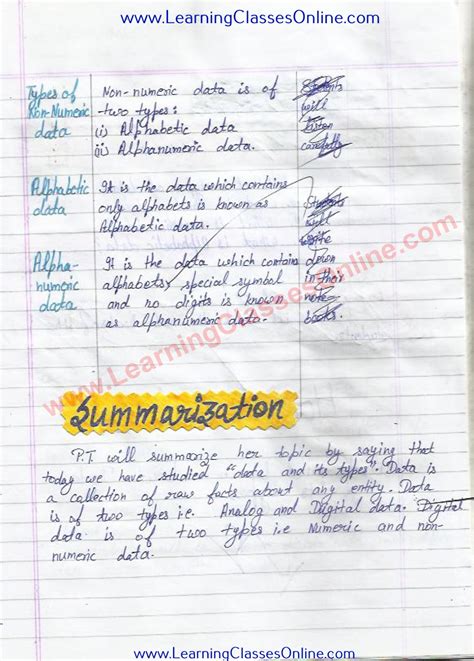 www.LearningClassesOnline.com
Types of Non-numeric data is of Students
Non-Numeric two types: will
data (i) Alphabetic data listen
ii) Alphanumeric data. carefully
Alphabetic It is the data which contains
data only alphabets is known as Students
Alphabetic data. will
write
Alpha- It is the data which contains down
numeric alphabets, special symbol in their
data and no digits is known note
as alphanumeric data. books.
www.LearningClassesOnline.com
Summarization
P.T will summarize her topic by saying that
today we have studied "data and its types". Data is
a collection of raw facts about any entity. Data
is of two types i.e. Analog and Digital data. Digital
data is of two types i.e Numeric and non-
numeric data.
www.LearningClassesOnline.com